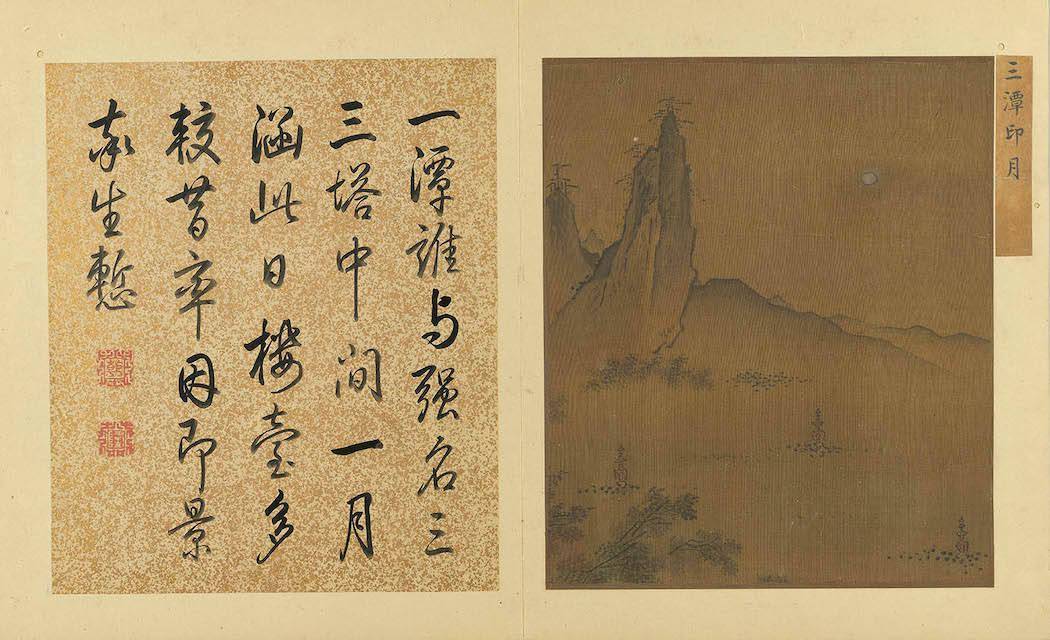 三潭印月
一潭誰与强名三
三塔中間一月
涵此日樓臺多
較昔率因即景
生慙